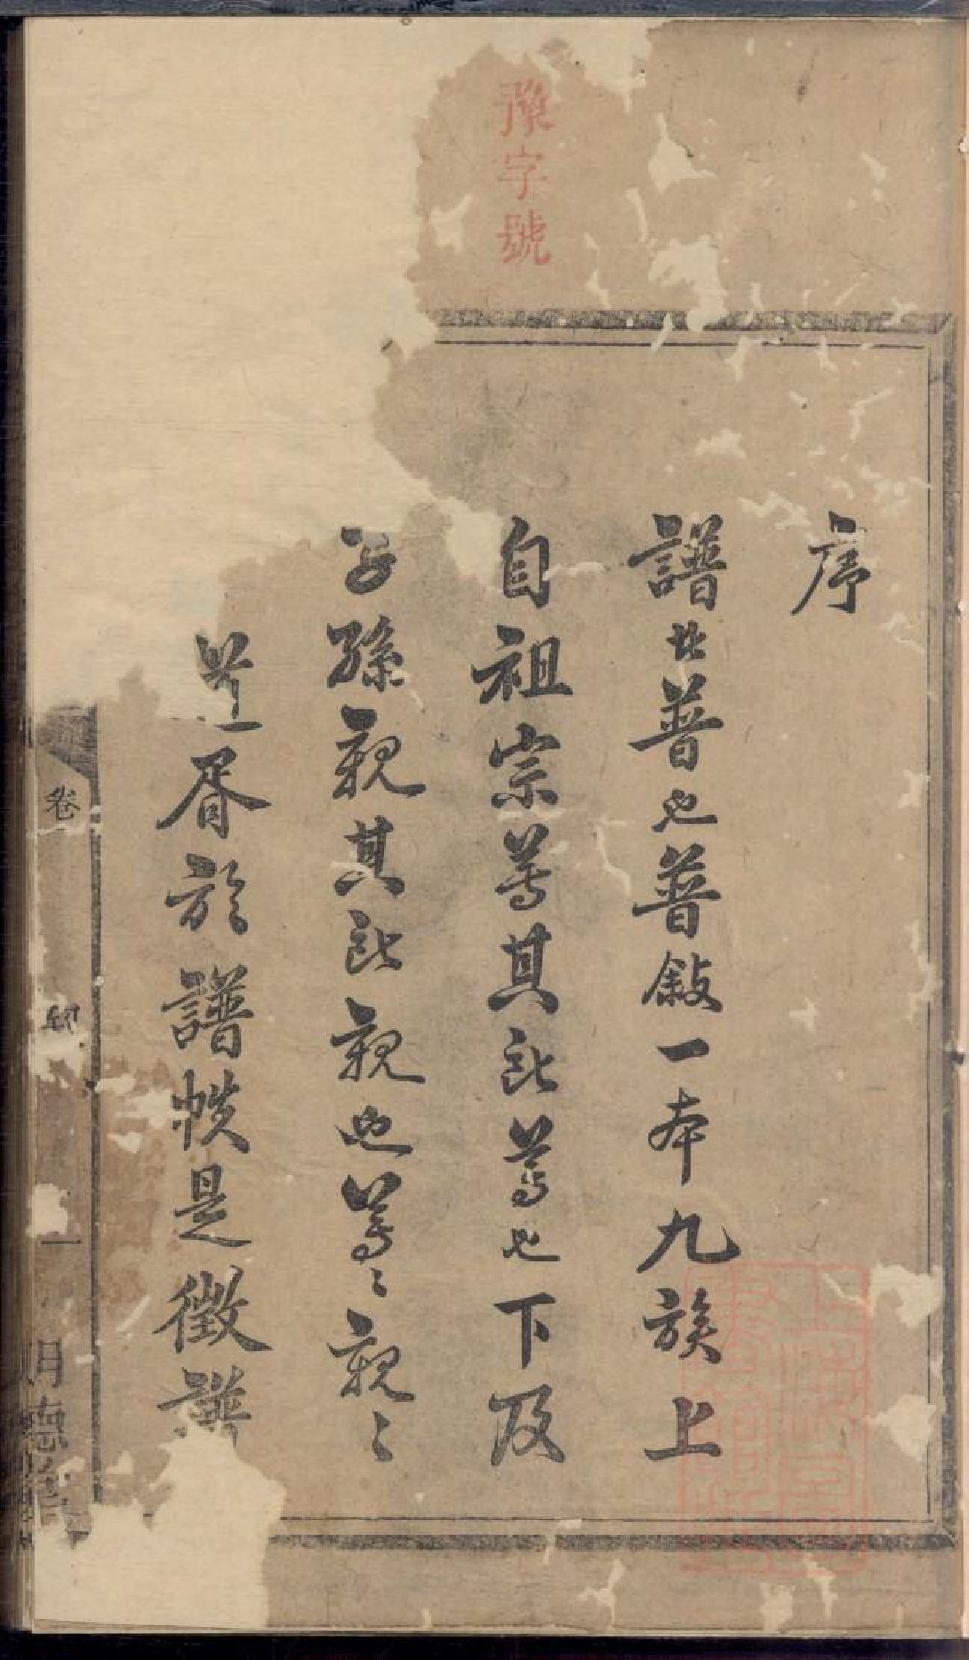 豫字號
序
譜者普也普敍一本九族上
自祖宗尊其所尊也下及
子孫親其所親也尊〻親〻
胥於譜帙是徵譜
卷
一
明德堂